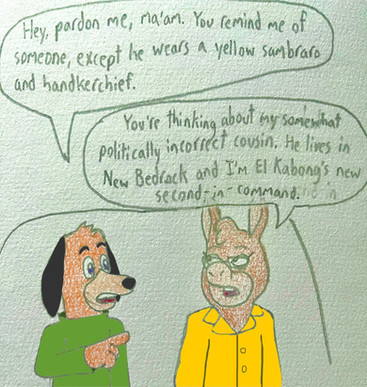 Hey, pardon me, ma'am. You remind me of
someone, except he wears a yellow sambraro
and handkerchief.
You're thinking about my somewhat
politically incorrect cousin. He lives in
New Bedrock and I'm El Kabong's new
second-in-command.